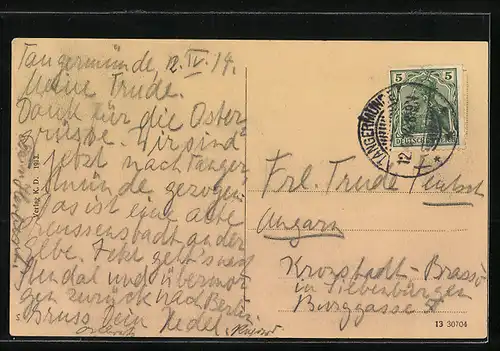 Tangermünde, 12. IV. 14.
Meine Trude.
Dank für die Oster-
grüsse. Wir sind
jetzt nach Tanger
münde gezogen
Das ist eine alte
Preussenstadt an der
Elbe. geht's nach
Stendal und übermor-
gen zurück nach Berlin
Gruss Dein Hedel.
Verlag K. D. 1912.
5 5
DEUTSCHES
TANGERMÜNDE
12
Frl. Trude
Ungarn
Kronstadt-Brassó
in Siebenbürgen
Burggasse
13 30704
S